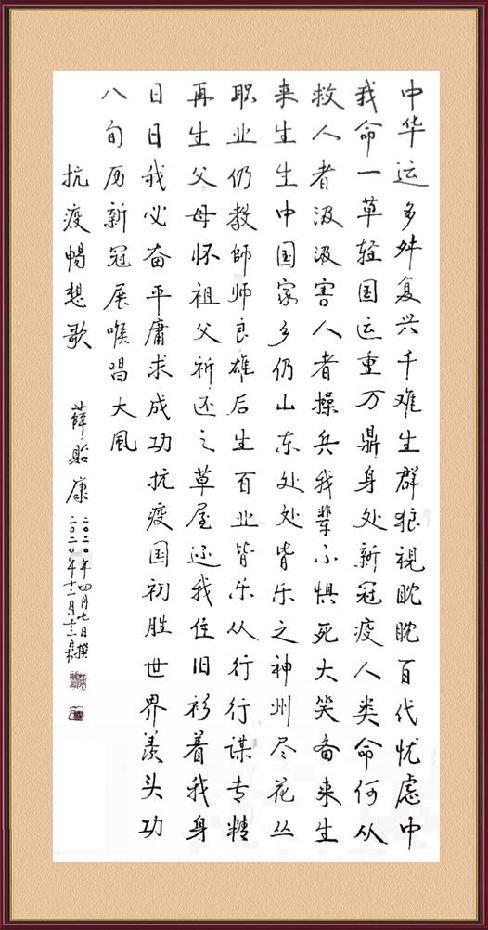 中华运多舛复兴千难生群狼视眈眈百代忧虑中
我命一草轻国运重万鼎身处新冠疫人类命何从
救人者汲汲害人者操兵我辈不惧死大笑备来生
来生生中国家乡仍山东处处皆乐之神州尽花丛
职业仍教师师良雄后生百业皆乐从行行谋专精
再生父母怀祖父祈还之草屋还我住旧衫着我身
日日我必奋平庸求成功抗疫国初胜世界羡头功
八旬历新冠展喉唱大风
抗疫畅想歌
薛贻康
二〇二〇年四月七日撰
二〇二〇年十二月十二日